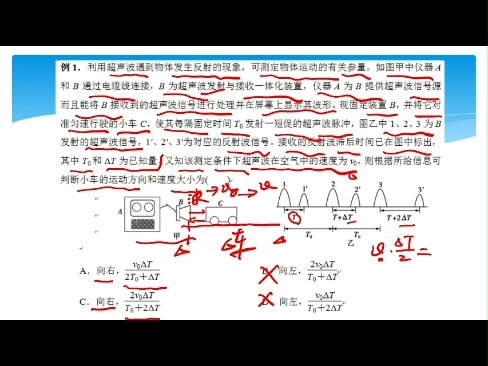 例1．利用超声波遇到物体发生反射的现象，可测定物体运动的有关参量。如图甲中仪器A
和B通过电缆线连接，B为超声波发射与接收一体化装置，仪器A为B提供超声波信号源
而且能将B接收到的超声波信号进行处理并在屏幕上显示其波形。现固定装置B，并将它对
准匀速行驶的小车C，使其每隔固定时间T0发射一短促的超声波脉冲，图乙中1、2、3为B
发射的超声波信号，1′、2′、3′为对应的反射波信号。接收的反射波滞后时间已在图中标出，
其中T0和ΔT为已知量，又知该测定条件下超声波在空气中的速度为v0，则根据所给信息可
判断小车的运动方向和速度大小为(　　)
v0 v
1 1′ 2 2′ 3 3′
A B C
T T+ΔT T+2ΔT
T0 T0
甲 乙
v0·ΔT/2=
A．向右，v0ΔT/2T0+ΔT
B．向左，2v0ΔT/T0+ΔT
C．向右，2v0ΔT/T0+2ΔT
D．向左，v0ΔT/T0+2ΔT